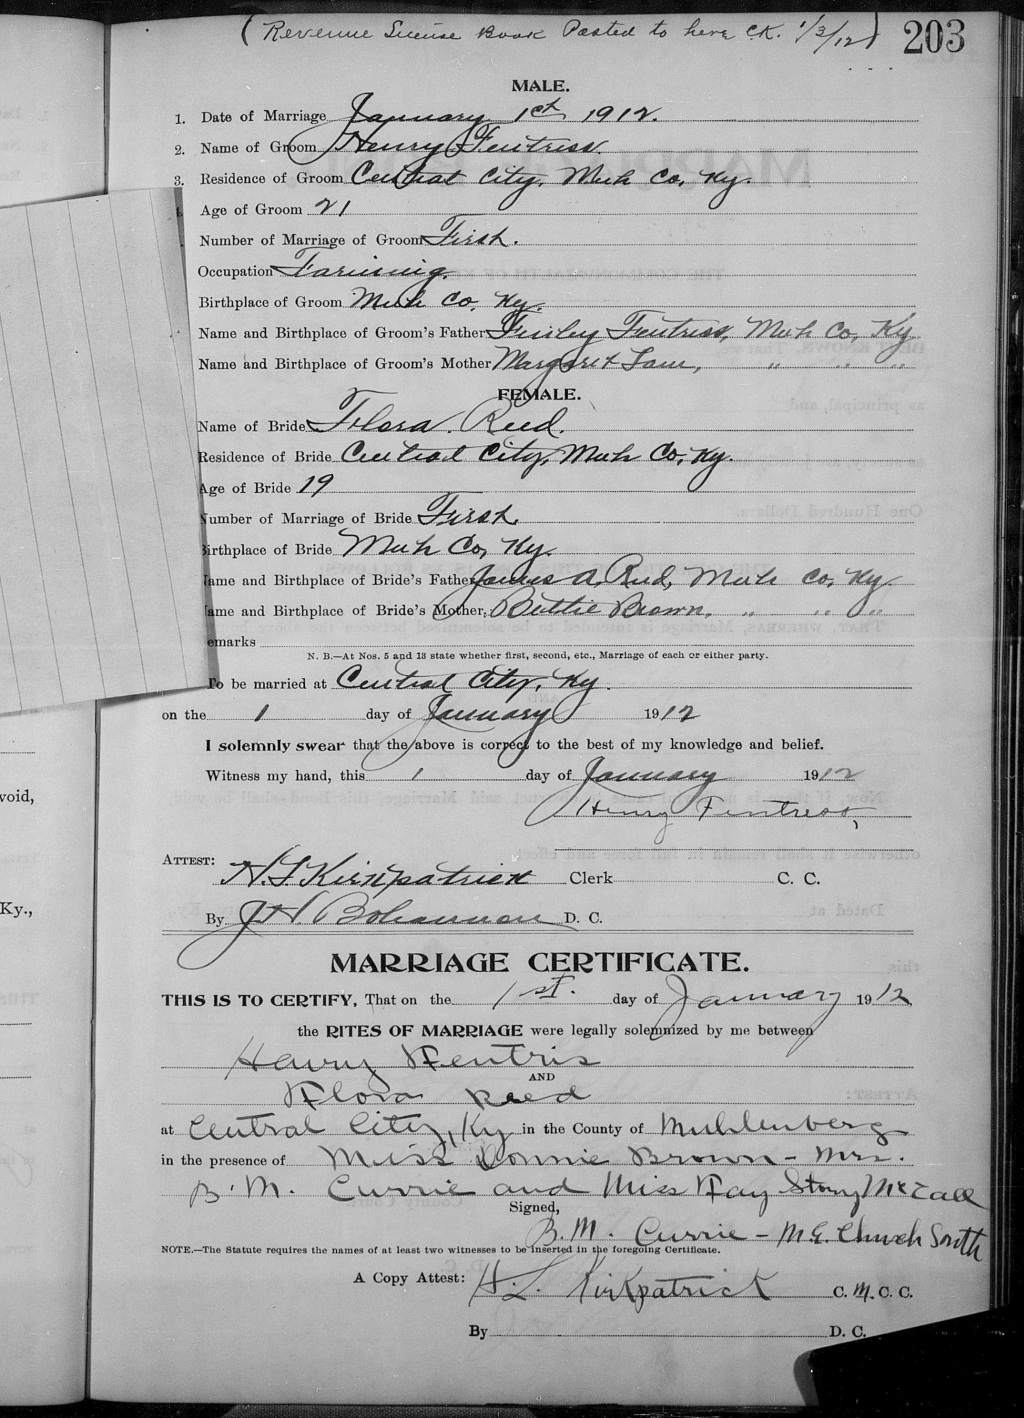 ( Revenue License Book Posted to here C.K. 1/3/12 ) 203
MALE.
1. Date of Marriage January 1st, 1912.
2. Name of Groom Henry Fentress.
3. Residence of Groom Central City, Muh Co, Ky.
Age of Groom 21
Number of Marriage of Groom First.
Occupation Farming.
Birthplace of Groom Muh Co, Ky.
Name and Birthplace of Groom's Father Finley Fentress, Muh Co, Ky
Name and Birthplace of Groom's Mother Margaret Lam, " " "
FEMALE.
Name of Bride Flora. Reed.
Residence of Bride Central City, Muh Co, Ky.
Age of Bride 19
Number of Marriage of Bride First.
Birthplace of Bride Muh Co, Ky.
ame and Birthplace of Bride's Father James A. Reed, Muh Co, Ky.
ame and Birthplace of Bride's Mother, Bettie Brown, " " "
emarks
N. B.—At Nos. 5 and 13 state whether first, second, etc., Marriage of each or either party.
To be married at Central City, Ky.
on the 1 day of January 1912
I solemnly swear that the above is correct to the best of my knowledge and belief.
Witness my hand, this 1 day of January 1912
Henry Fentress,
ATTEST: H. L. Kirkpatrick Clerk C. C.
By J. H. Bohannon D. C.
MARRIAGE CERTIFICATE.
THIS IS TO CERTIFY, That on the 1st. day of January 1912
the RITES OF MARRIAGE were legally solemnized by me between
Henry Fentris
AND
Flora Reed
at Central City, Ky in the County of Muhlenberg
in the presence of Miss Donnie Brown - Mrs.
B. M. Currie and Miss Fay Story McCall
Signed,
B. M. Currie - M.E. Church South
NOTE.—The Statute requires the names of at least two witnesses to be inserted in the foregoing Certificate.
A Copy Attest: H. L. Kirkpatrick C. M. C. C.
By D. C.
void,
Ky.,